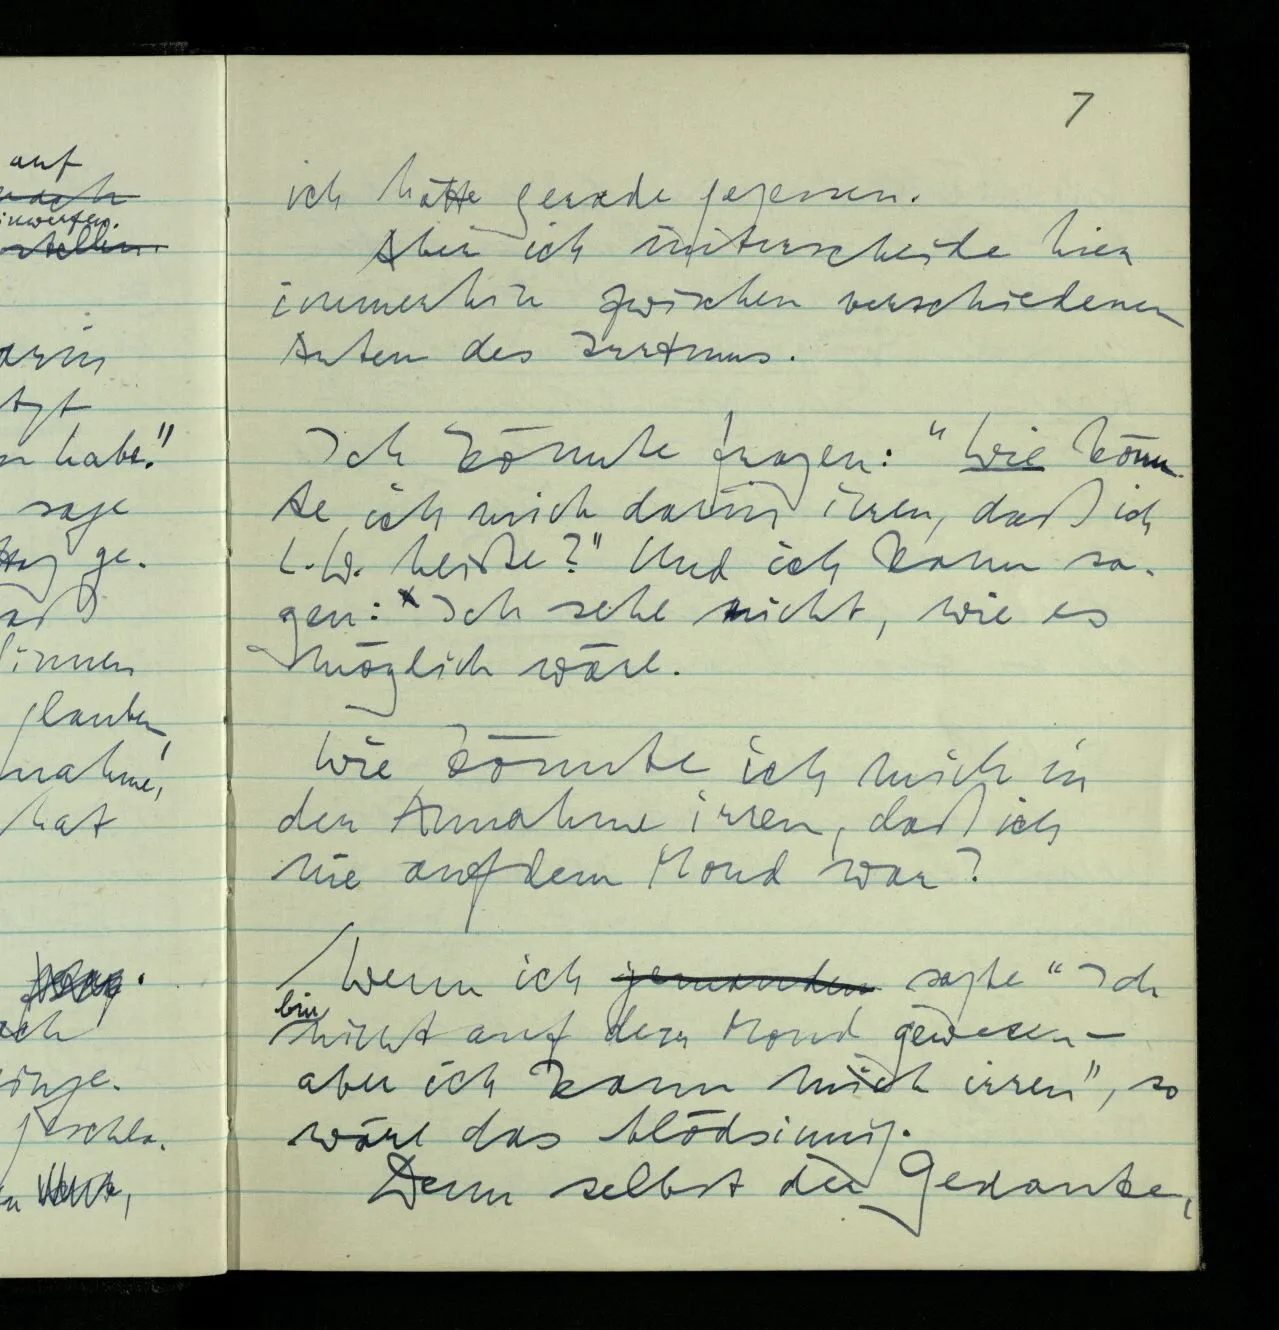 7
auf
ich hätte gerade gegessen.
Aber ich unterscheide hier
immerhin zwischen verschiedenen
Arten des Irrtums.
habe."
sage
ge.
glauben,
hat
Ich könnte fragen: "Wie könn-
te ich mich darin irren, daß ich
L.W. heiße?" Und ich kann sa-
gen: Ich sehe nicht, wie es
möglich wäre.
Wie könnte ich mich in
der Annahme irren, daß ich
nie auf dem Mond war?
Wenn ich jemanden sagte "Ich
bin
nicht auf dem Mond gewesen –
aber ich kann mich irren", so
wäre das blödsinnig.
Denn selbst der Gedanke,